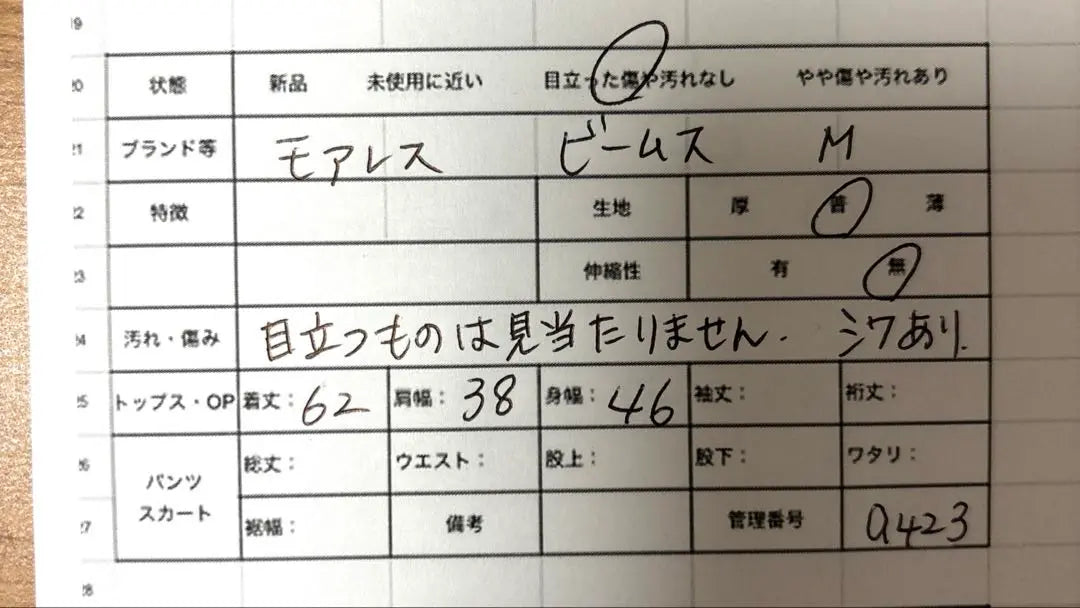 19
20 状態 新品 未使用に近い 目立った傷や汚れなし やや傷や汚れあり
21 ブランド等 モアレス ビームス M
22 特徴 生地 厚 普 薄
23 伸縮性 有 無
24 汚れ・傷み 目立つものは見当たりません. シワあり.
25 トップス・OP 着丈: 62 肩幅: 38 身幅: 46 袖丈: 裄丈:
26 総丈: ウエスト: 股上: 股下: ワタリ:
パンツ
スカート
27 裾幅: 備考 管理番号 a423
28